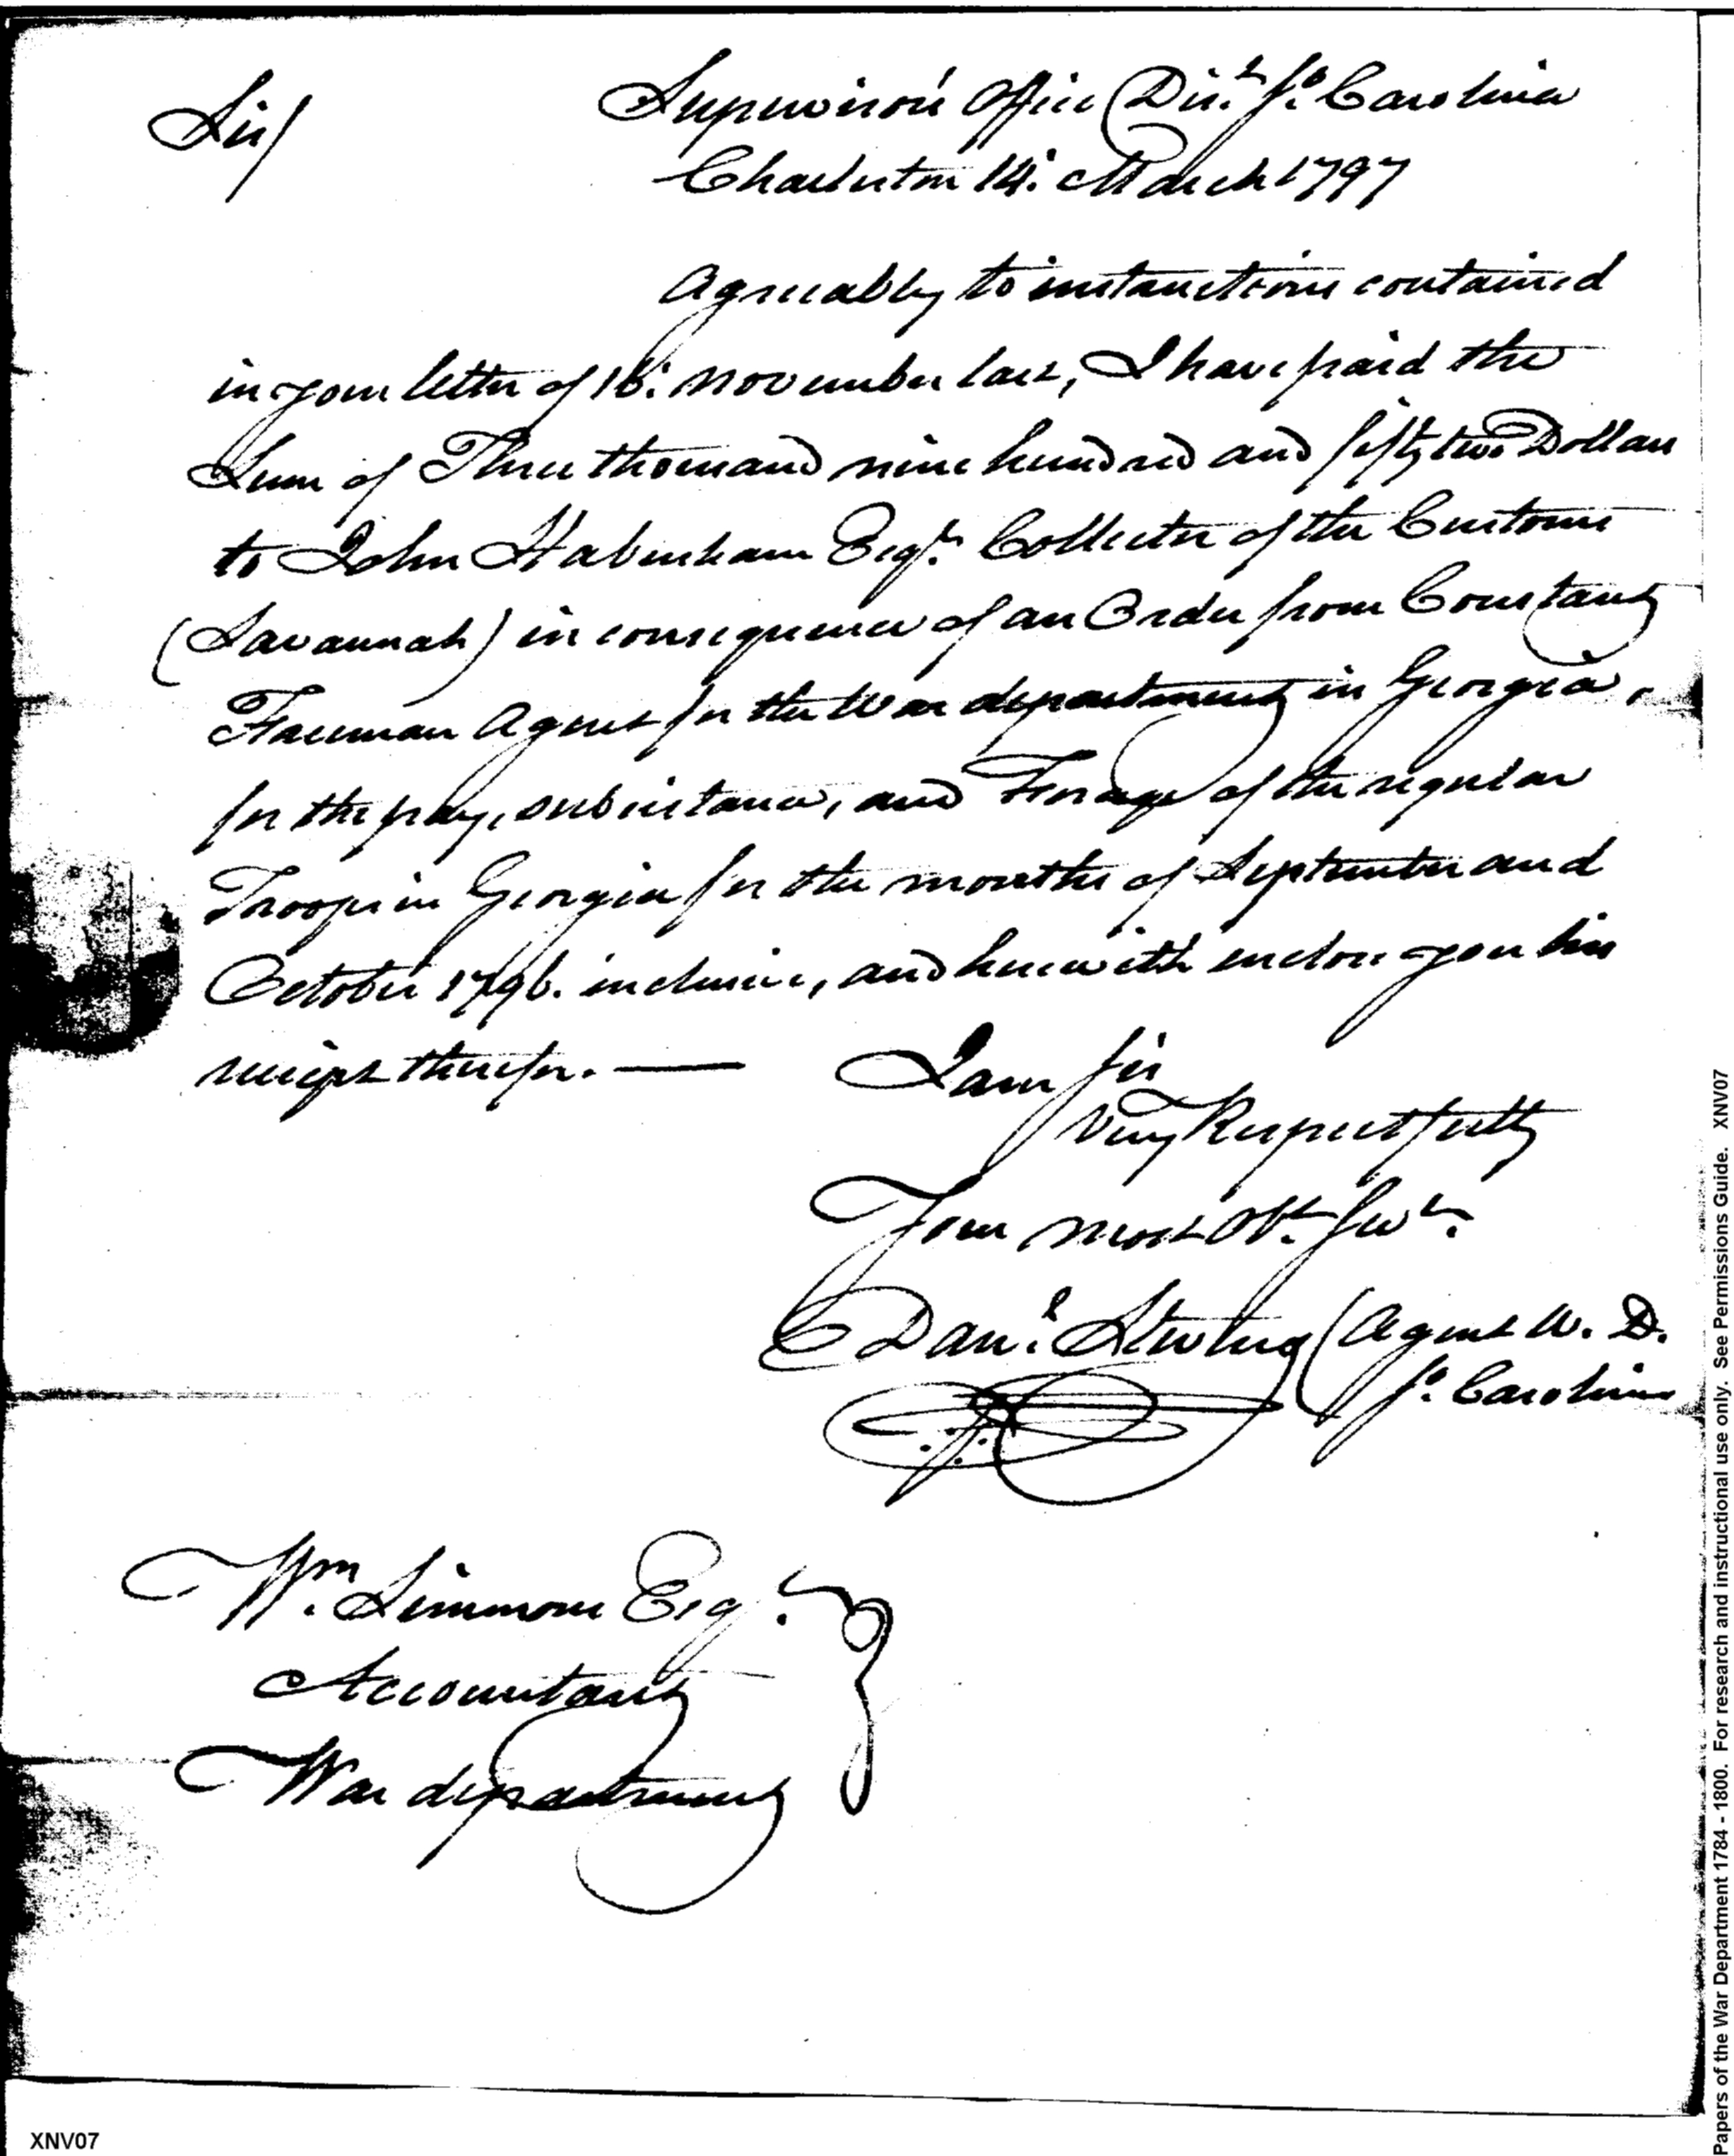 Sir/
Supervisors Office (Dist. So. Carolina
Charleston 14. March 1797
Agreeably to instructions contained
in your letter of 16. November last, I have paid the
Sum of Three thousand nine hundred and fifty two Dollars
to John Habersham Esqr. Collector of the Customs
(Savannah) in consequence of an Order from Constant
Freeman Agent for the War department in Georgia,
for the pay, subsistance, and Forage of the regular
Troops in Georgia for the months of September and
October 1796. inclusive, and herewith enclose you his
receipt therefor. —
I am Sir
Very Respectfully
Your most Obt. Servt.
Danl. Stevens (Agent W. D.
So. Carolina
Wm. Simmons Esqr.
Accountant
War department
XNV07
Papers of the War Department 1784 - 1800. For research and instructional use only. See Permissions Guide. XNV07